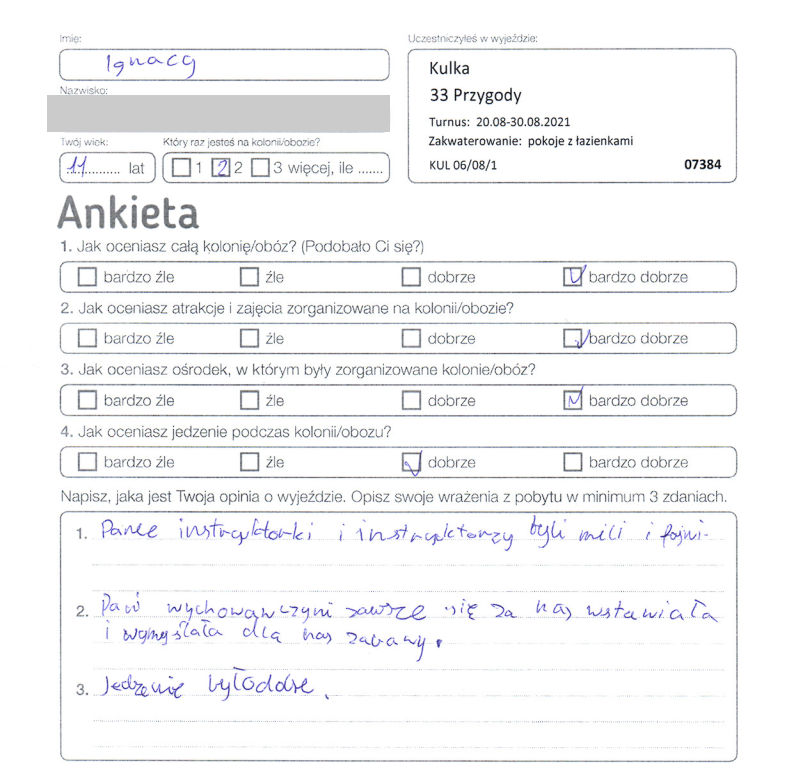 Imię:
Ignacy
Nazwisko:
Twój wiek:
Który raz jesteś na kolonii/obozie?
11 lat
1 2 2 3 więcej, ile .......
Uczestniczyłeś w wyjeździe:
Kulka
33 Przygody
Turnus: 20.08-30.08.2021
Zakwaterowanie: pokoje z łazienkami
KUL 06/08/1 07384
Ankieta
1. Jak oceniasz całą kolonię/obóz? (Podobało Ci się?)
bardzo źle źle dobrze bardzo dobrze
2. Jak oceniasz atrakcje i zajęcia zorganizowane na kolonii/obozie?
bardzo źle źle dobrze bardzo dobrze
3. Jak oceniasz ośrodek, w którym były zorganizowane kolonie/obóz?
bardzo źle źle dobrze bardzo dobrze
4. Jak oceniasz jedzenie podczas kolonii/obozu?
bardzo źle źle dobrze bardzo dobrze
Napisz, jaka jest Twoja opinia o wyjeździe. Opisz swoje wrażenia z pobytu w minimum 3 zdaniach.
1. Panie instruktorki i instruktorzy byli mili i fajni.
2. Pani wychowawczyni zawsze się za nas wstawiała
i wymyślała dla nas zabawy.
3. Jedzenie było dobre.